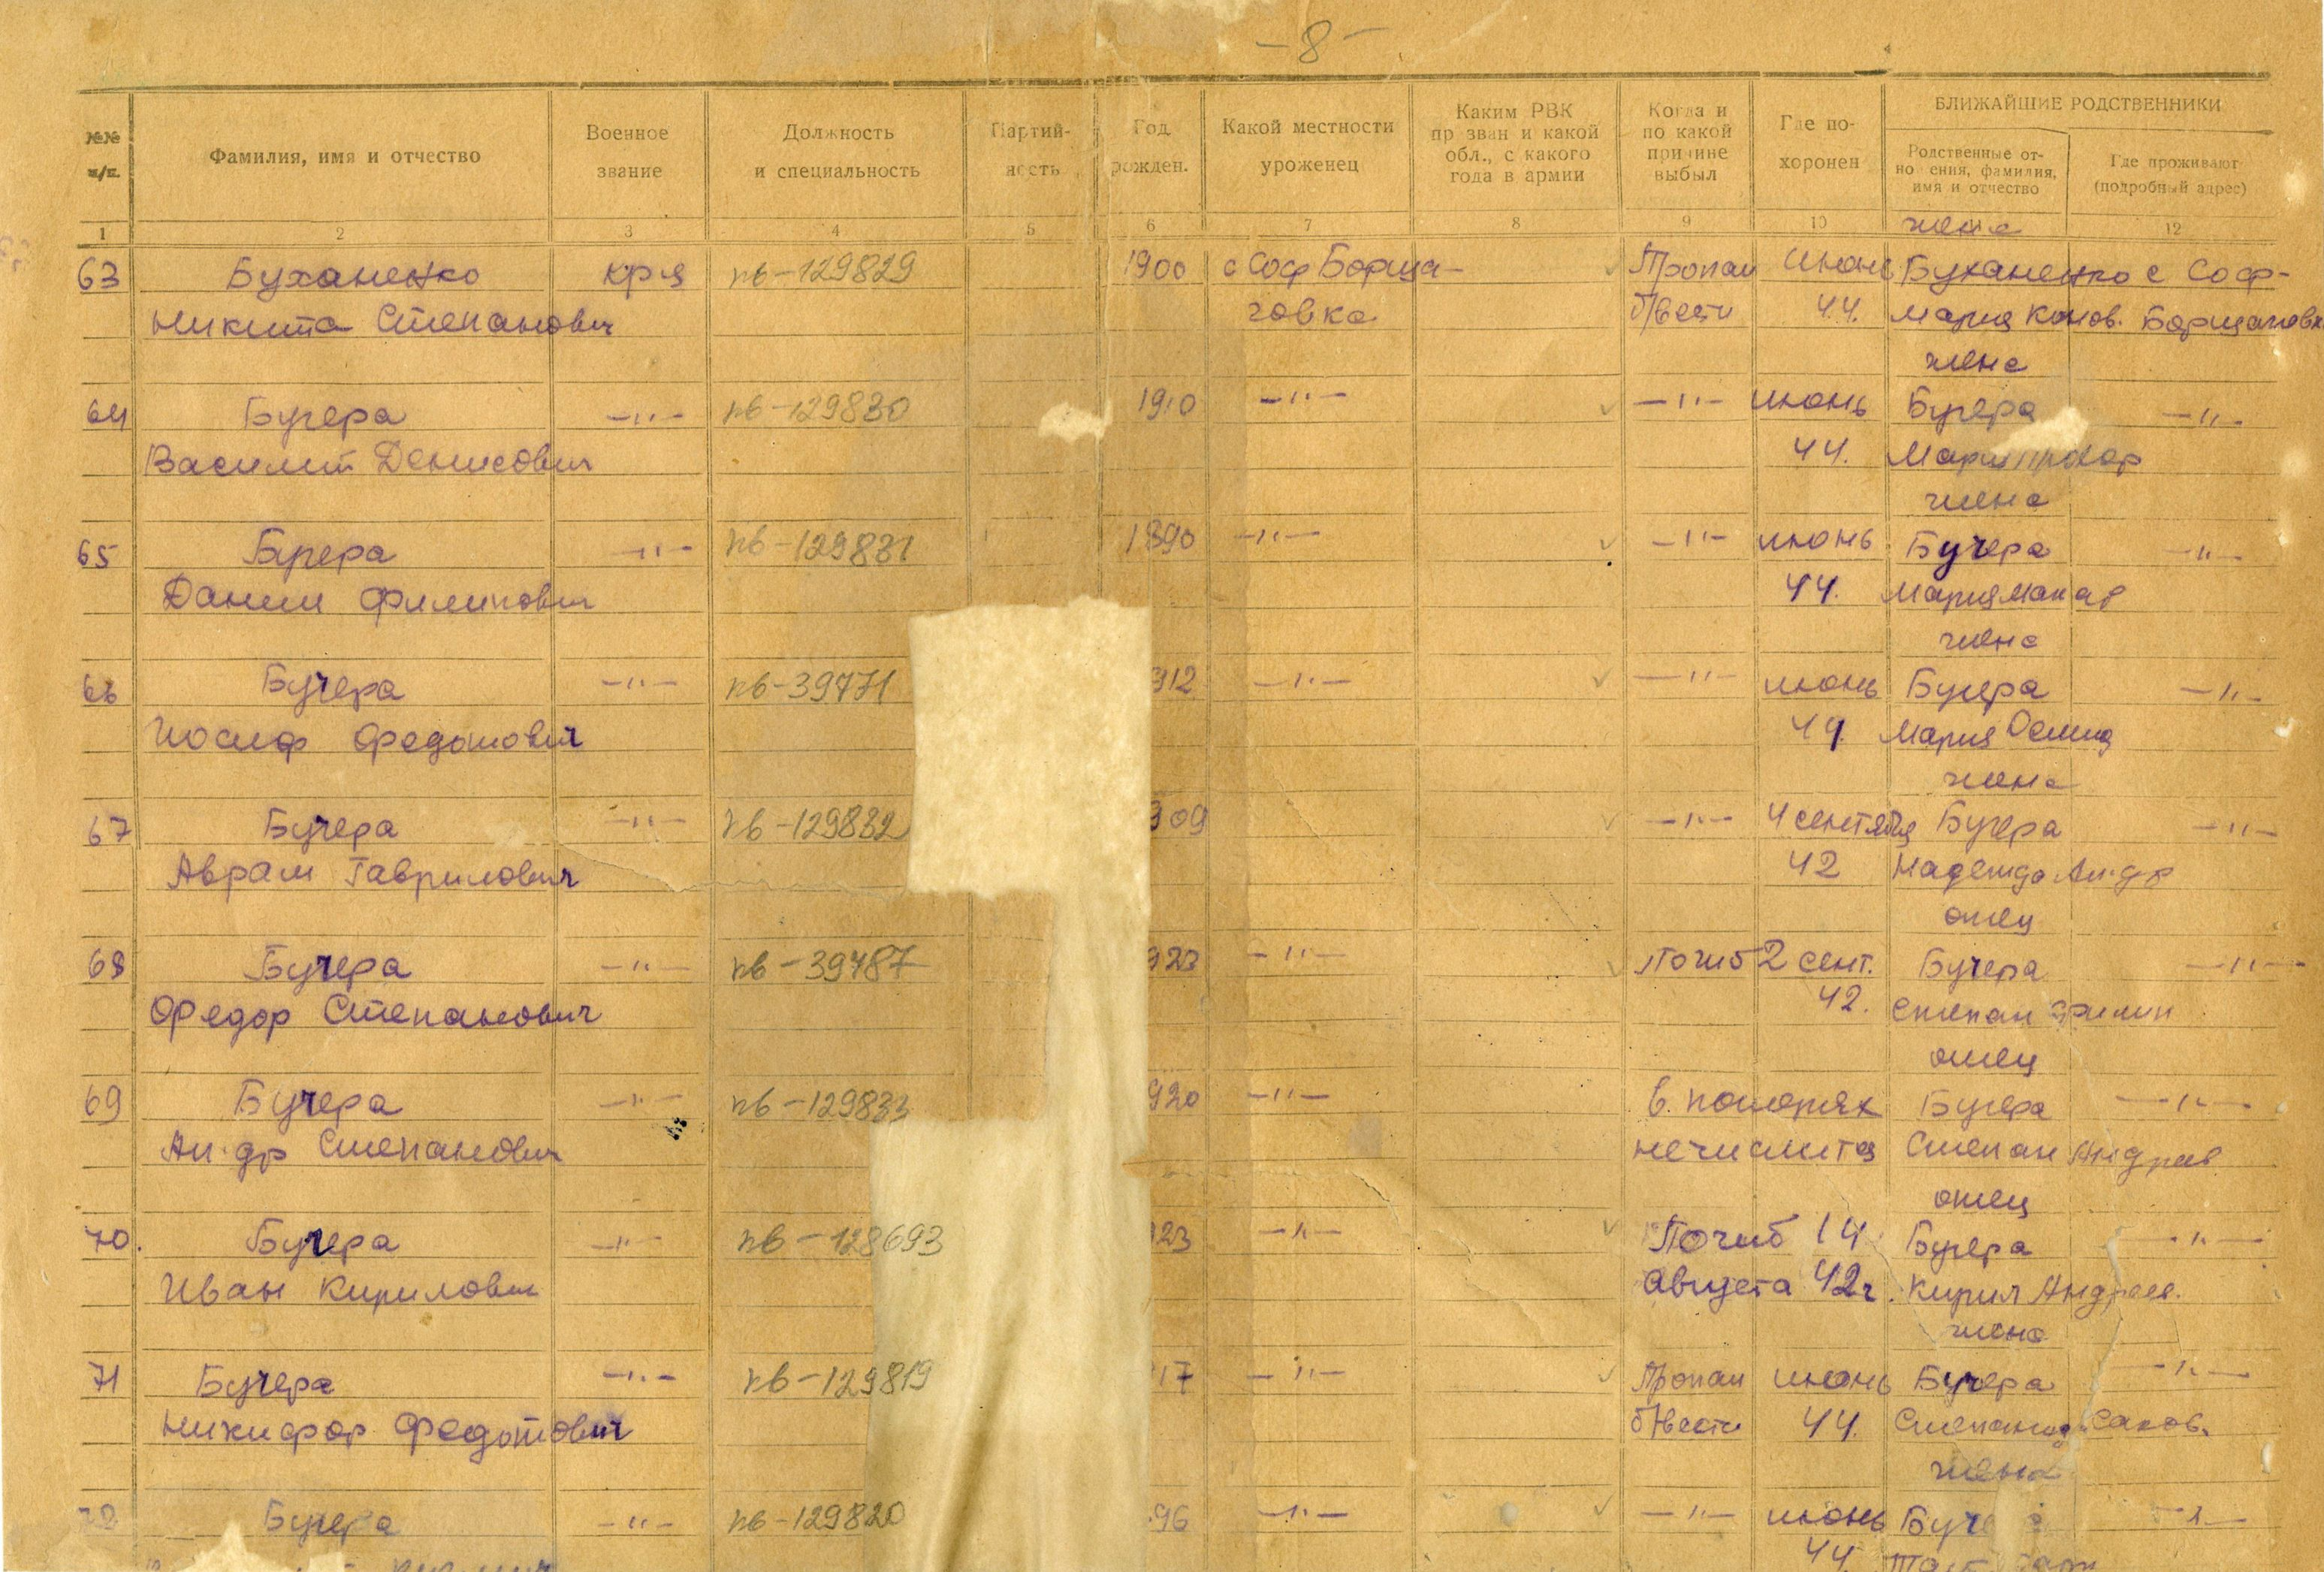 - 8 -
№№ п/п.
Фамилия, имя и отчество
Военное
звание
Должность
и специальность
Партий-
ность
Год
рожден.
Какой местности
уроженец
Каким РВК
призван и какой
обл., с какого
года в армии
Когда и
по какой
причине
выбыл
Где по-
хоронен
БЛИЖАЙШИЕ РОДСТВЕННИКИ
Родственные от-
ношения, фамилия,
имя и отчество
Где проживают
(подробный адрес)
1 2 3 4 5 6 7 8 9 10 12
жена
63 Буханенко кр-ц пв-129829 1900 с Соф Борща- Пропал Июнь Буханенко с Соф-
Никита Степанович говка б/вести 44. Мария Конов. Борщаговка
жена
64 Бучера -"- пв-129830 1910 -"- -"- июнь Бучера -"-
Василий Денисович 44. Мария Прохор
жена
65 Бучера -"- пв-129831 1890 -"- -"- июнь Бучера -"-
Данил Филипович 44. Мария Макар
жена
66 Бучера -"- пв-39471 912 -"- -"- июнь Бучера -"-
Иосиф Федотович 44 Мария
жена
67 Бучера -"- пв-129832 909 -"- 4 сентября Бучера -"-
Аврам Гаврилович 42 Надежда Ал-др
отец
68 Бучера -"- пв-39487 923 -"- Погиб 2 сент. Бучера -"-
Федор Степанович 42. Степан Филип
отец
69 Бучера -"- пв-129833 920 -"- в потерях Бучера -"-
Ал-др Степанович нечислится Степан Андреев
отец
70. Бучера -"- пв-128693 23 -"- Погиб 14 Бучера -"-
Иван Кирилович августа 42г. Кирил Андреев.
жена
71 Бучера -"- пв-129819 17 -"- Пропал июнь Бучера -"-
Никифор Федотович б/вести 44. Степанида
жена
72 Бучера -"- пв-129820 96 -"- -"- июнь Буче -"-
44.